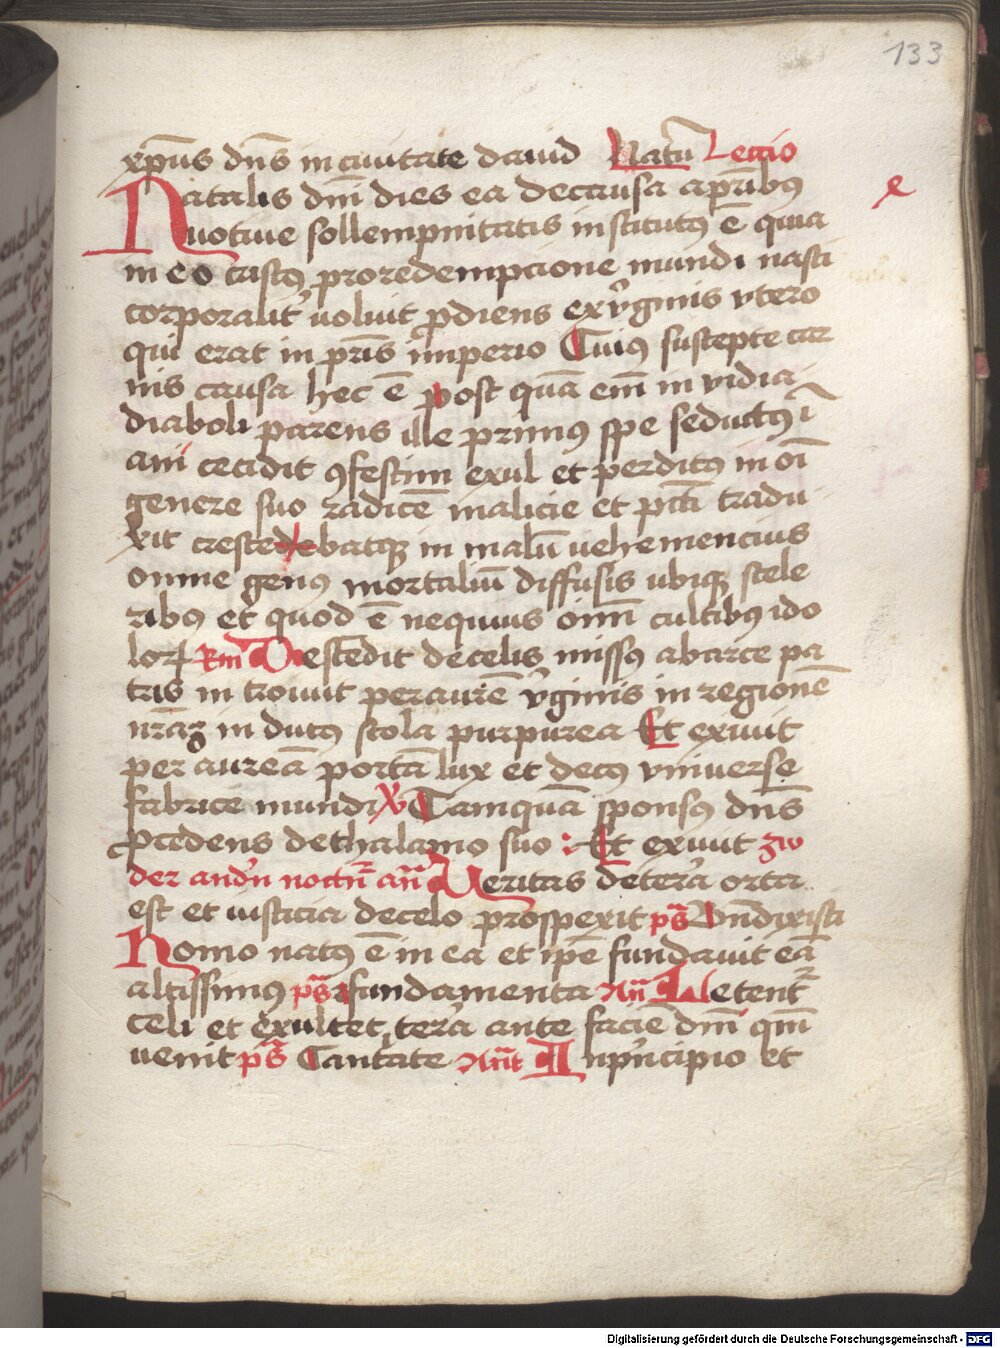 133
xpūs dn̄s in ciuitate dauid Natur̄ Lectio
Natalis dn̄i dies ea decausa apr̄ibꝰ
e
uotiue sollempnitatis institutꝰ ē quia
in eo cristꝰ proredempcione mundi nasci
corporalit' uoluit ꝓdiens exv'ginis vtero
qui erat in pr̄is imperio Cuiꝰ suscepte car
nis causa hec ē Post quā em̄ inuidia
diaboli parens ille primꝰ spe seductꝰ ī
ani cecidit ꝯfestim exul et perditꝰ in oī
genere suo radicē malicie et pcti tradu
xit crescedebatqꝫ in malū uehemencius
omne genꝰ mortaliū diffusis ubiqꝫ scele
ribꝰ et quod ē nequius oīm cultibꝰ ido
loꝝ Rm̄ Descedit decelis missꝰ abarce pa
tris in troiuit peraurē v'ginis in regionē
nrāꝫ in dutꝰ stola purpurea Et exiuit
per aureā portā lux et decꝰ vniuerse
fabrice mundi V' Tamquā sponsꝰ dn̄s
ꝓcedens dethalamo suo : Et exiuit zw
der and'n noctn̄ an̄ Ueritas deter'a orta
est et iusticia decelo prospexit ps̄ Bn̄dixisti
Homo natꝰ ē in ea et ipē fundauit eā
altissimꝰ ps̄ fundamenta An̄ Letent'
celi et exultet ter'a ante faciē dn̄i qm̄
venit ps̄ Cantate Ant̄ In p'ncipio et
Digitalisierung gefördert durch die Deutsche Forschungsgemeinschaft - DFG